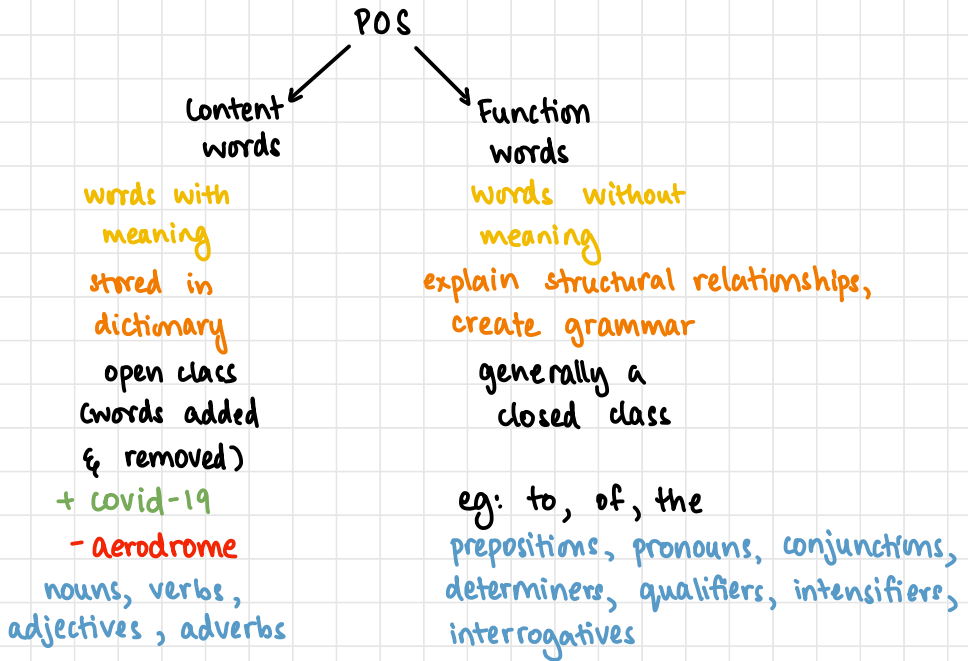 POS
Content
words
words with
meaning
stored in
dictionary
open class
(words added
& removed)
+ covid-19
- aerodrome
nouns, verbs,
adjectives, adverbs
Function
words
words without
meaning
explain structural relationships,
create grammar
generally a
closed class
eg: to, of, the
prepositions, pronouns, conjunctions,
determiners, qualifiers, intensifiers,
interrogatives